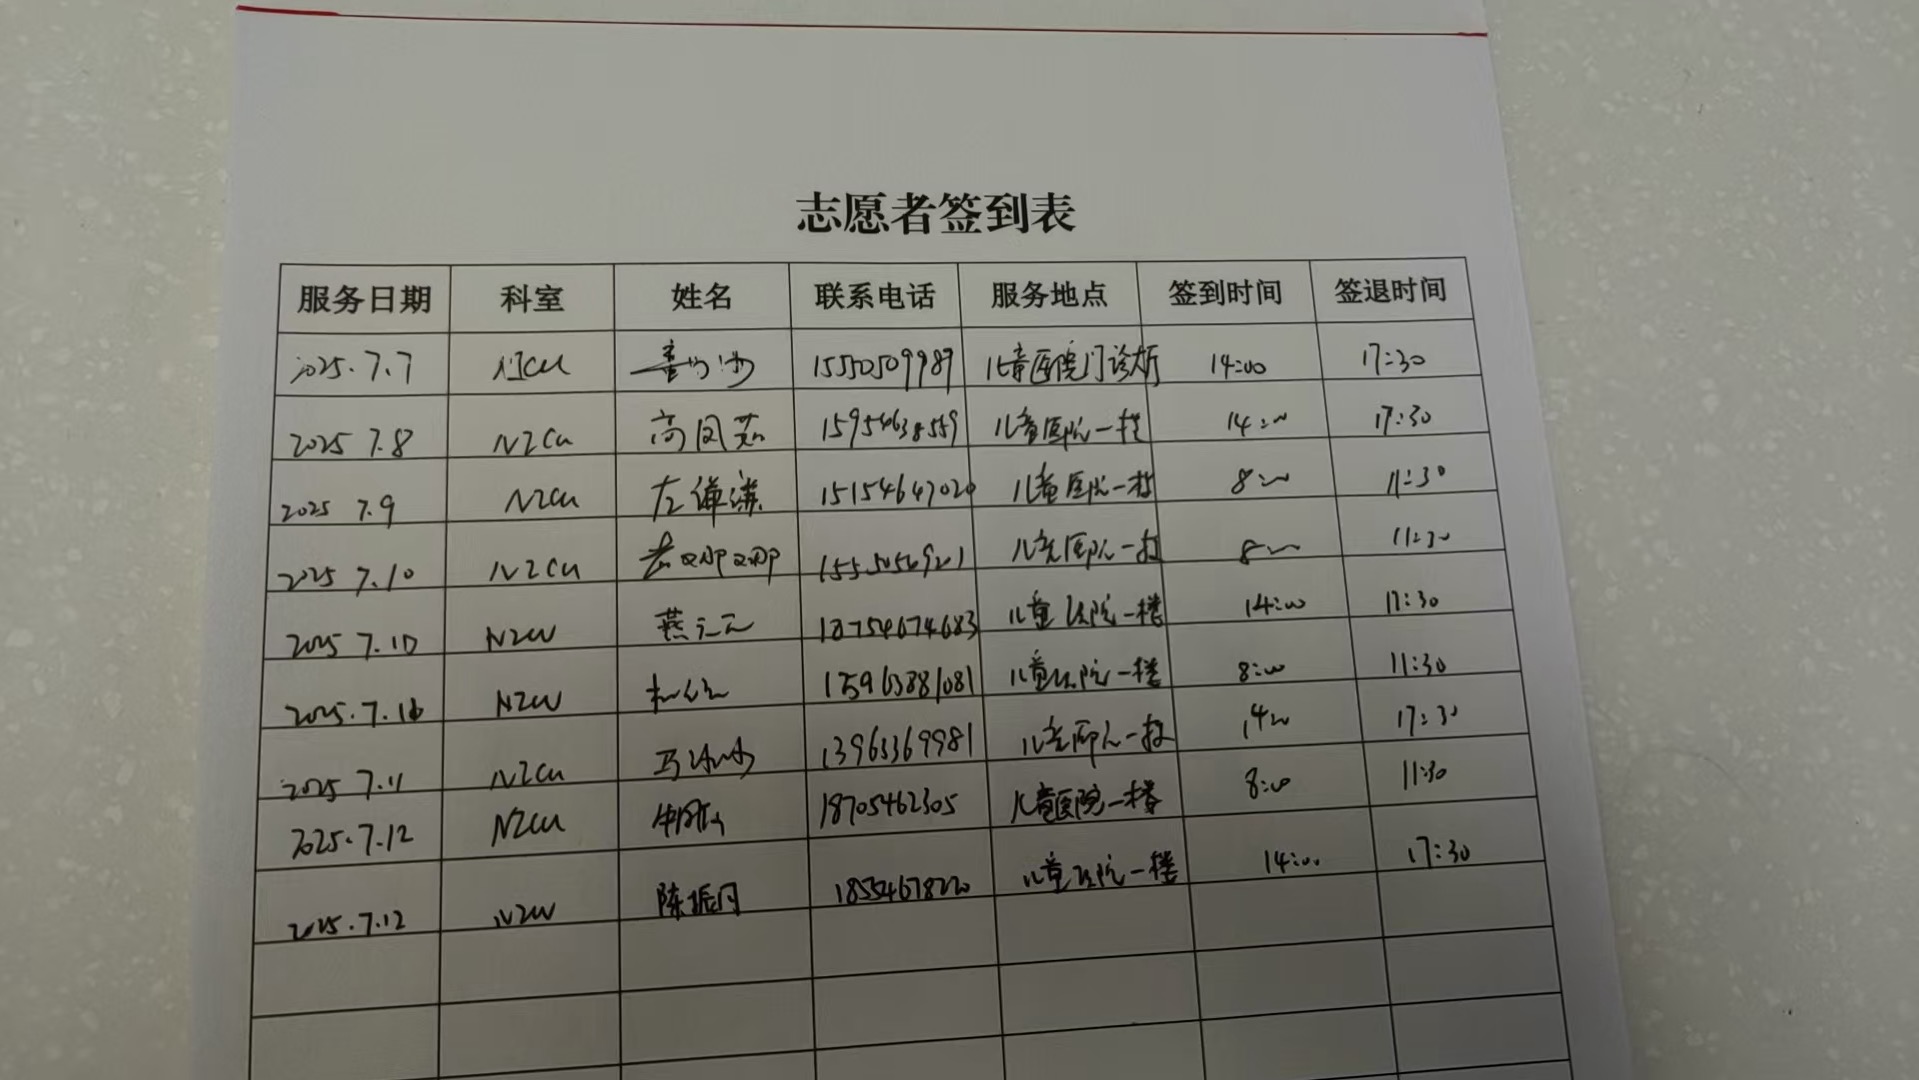 志愿者签到表
服务日期 科室 姓名 联系电话 服务地点 签到时间 签退时间
2025.7.7 15550509989 儿童医院门诊 14:00 17:30
2025 7.8 NICU 高凤茹 15954638559 儿童医院一楼 14:00 17:30
2025 7.9 NICU 左 15154647020 儿童医院一楼 8:00 11:30
2025 7.10 NICU 儿童医院一楼 8:00 11:30
2025 7.10 NICU 燕元元 18754674683 儿童医院一楼 14:00 17:30
2025.7. NICU 儿童医院一楼 8:00 11:30
2025 7.11 NICU 马 13963369981 儿童医院一楼 14:00 17:30
2025.7.12 NICU 18705462305 儿童医院一楼 8:00 11:30
2025.7.12 NICU 陈振月 18554678220 儿童医院一楼 14:00 17:30